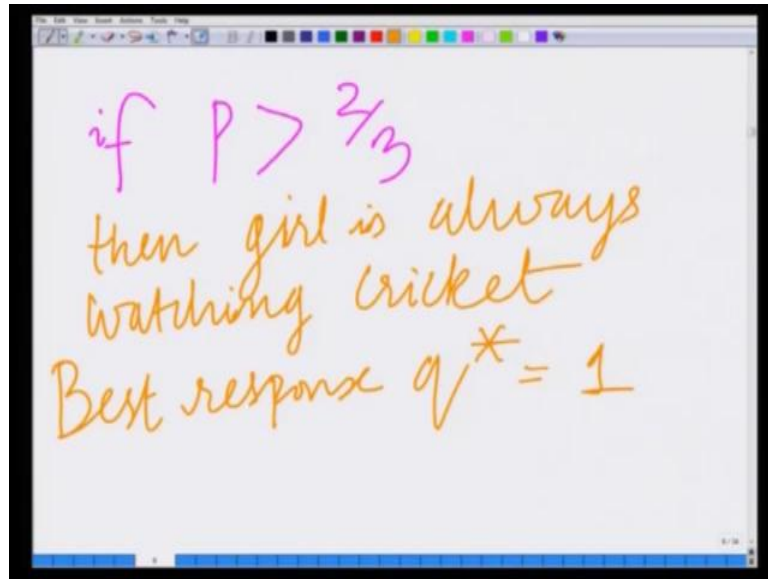 File Edit View Insert Actions Tools Help
if P > 2/3
then girl is always
watching cricket
Best response q* = 1